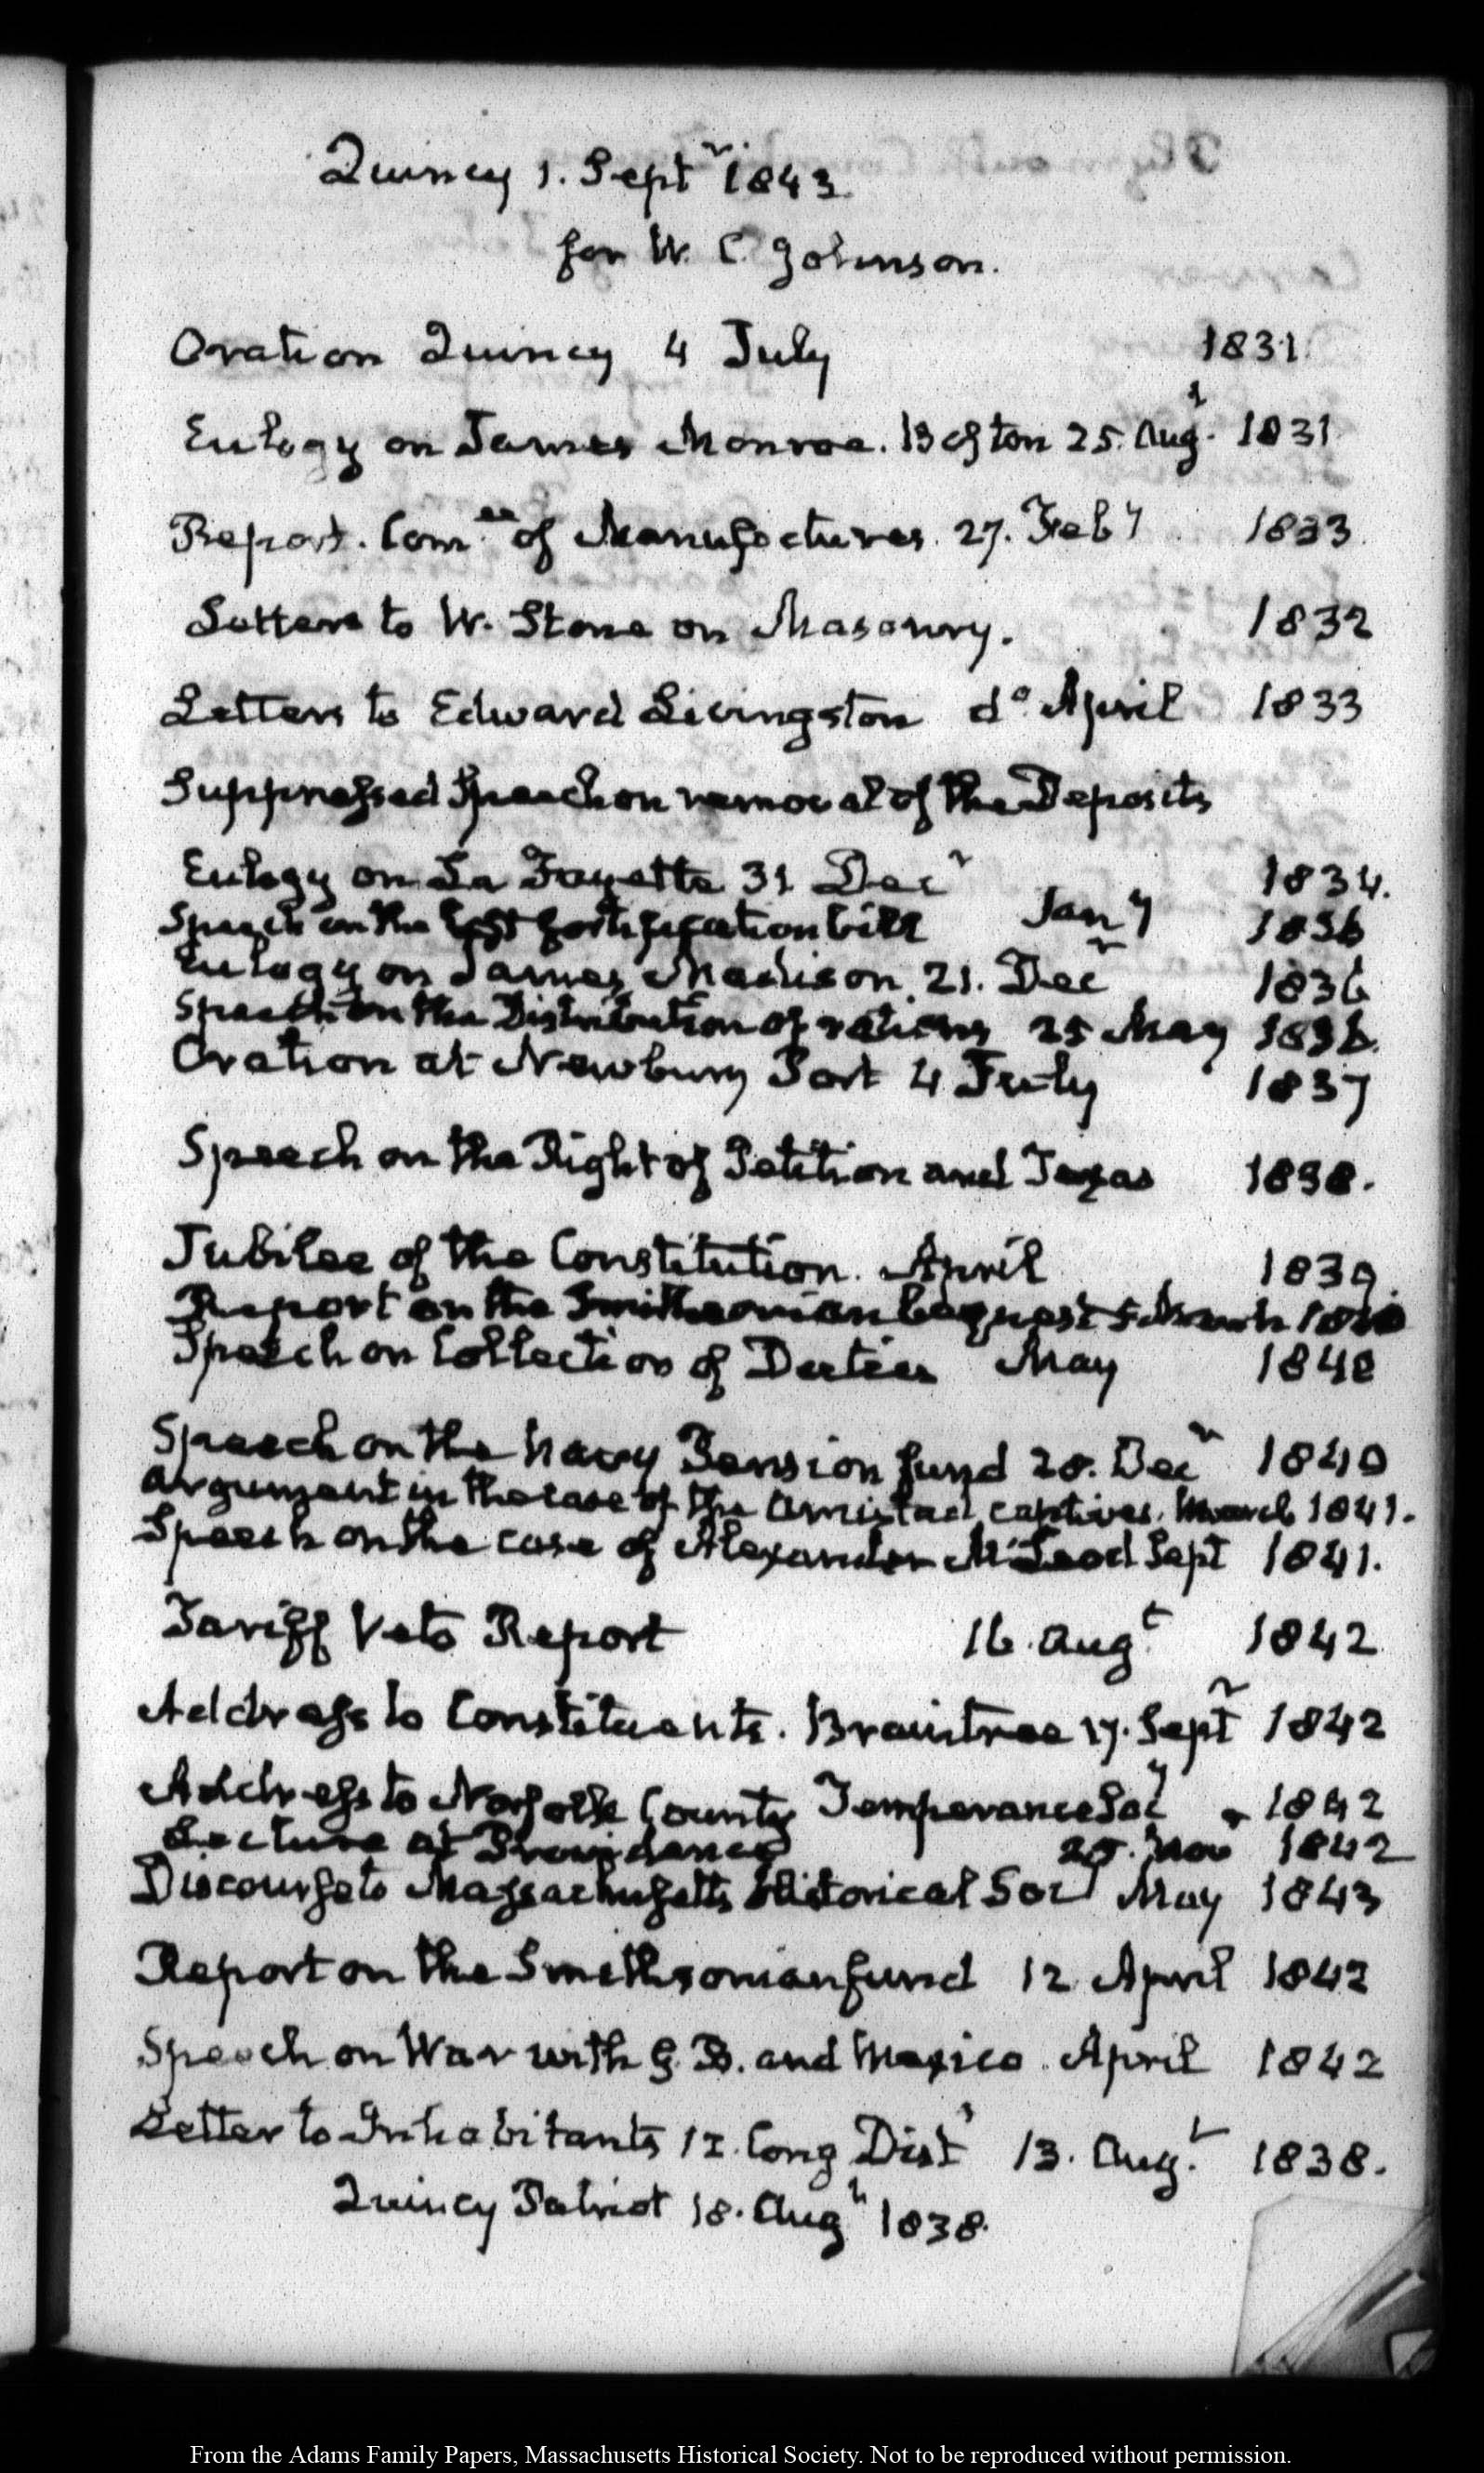 Quincy 1. Septr 1843.
for W. C. Johnson.
Oration Quincy 4 July 1831.
Eulogy on James Monroe. Boston 25. Augt. 1831
Report. Comee. of Manufactures. 27. Feby 1833
Letters to W. Stone on Masonry. 1832
Letters to Edward Livingston do. April 1833
Suppressed Speech on removal of the Deposits
Eulogy on La Fayette 31 Decr 1834.
Speech on the lost fortification bill Jany 1836
Eulogy on James Madison. 21. Decr 1836
Speech on the Distribution of rations 25 May 1836.
Oration at Newbury Port 4 July 1837
Speech on the Right of Petition and Texas 1838.
Jubilee of the Constitution. April 1839.
Report on the Smithsonian bequest 5 March 1840
Speech on Collection of Duties May 1840
Speech on the Navy Pension fund 28. Decr 1840
Argument in the case of the Amistad captives. March 1841.
Speech on the case of Alexander McLeod Sept 1841.
Tariff Veto Report 16. Augt. 1842
Address to Constituents. Braintree 17. Septr 1842
Address to Norfolk County Temperance Socy 1842
Lecture at Providence 25. Nov 1842
Discourse to Massachusetts Historical Soc May 1843
Report on the Smithsonian fund 12 April 1842
Speech on War with G. B. and Mexico. April 1842
Letter to Inhabitants 12. Cong Dist 13. Augt. 1838.
Quincy Patriot 18. Aug 1838.
From the Adams Family Papers, Massachusetts Historical Society. Not to be reproduced without permission.